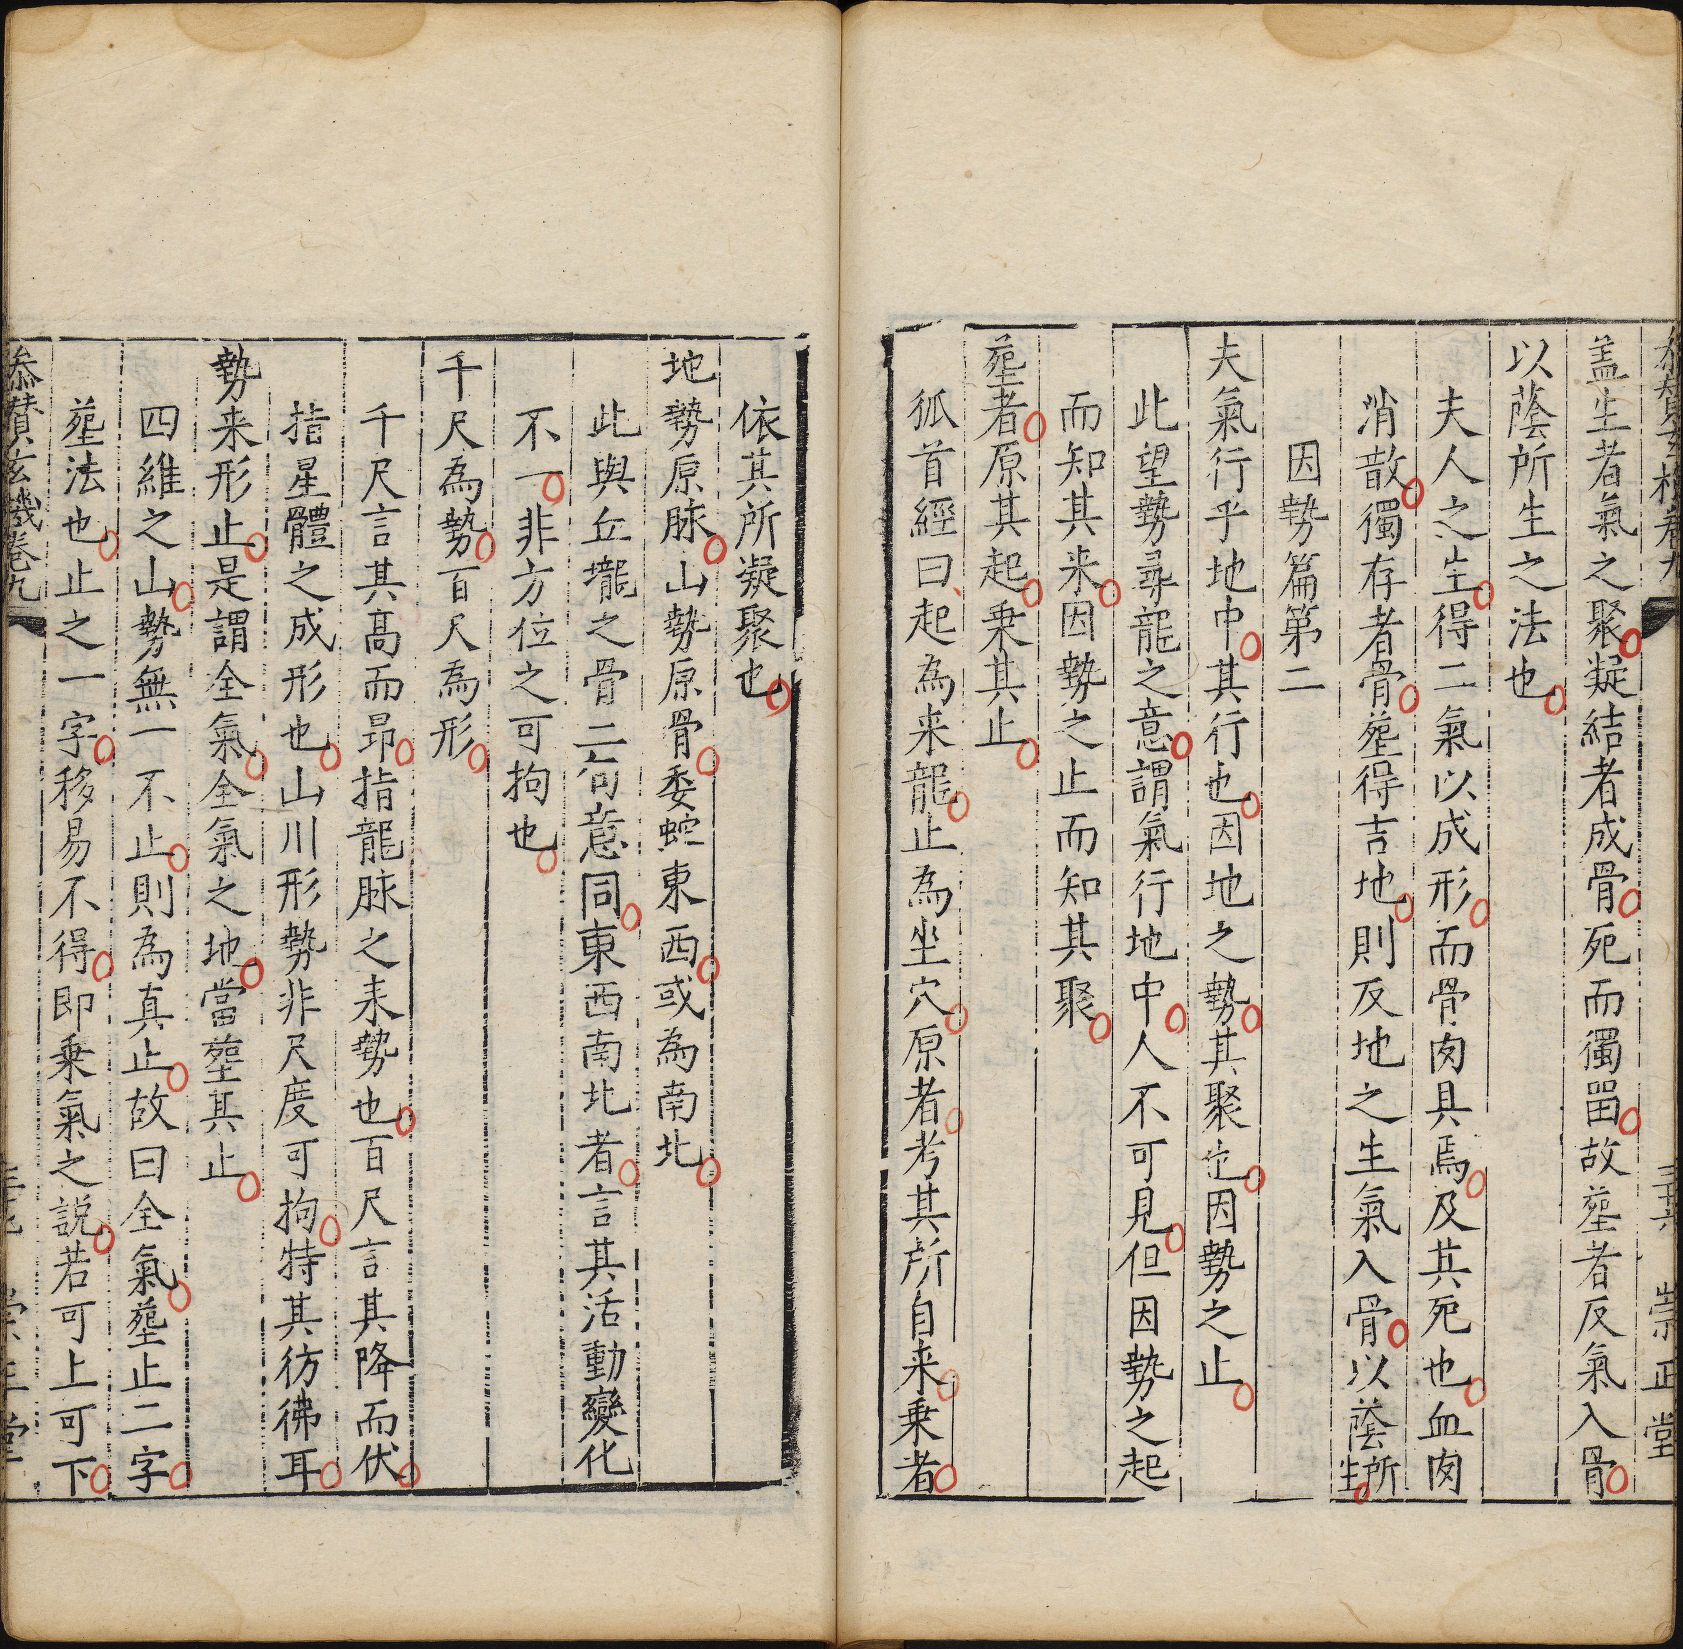 盖生者氣之聚凝結者成骨死而獨畱故塟者反氣入骨
以蔭所生之法也
夫人之生得二氣以成形而骨肉具焉及其死也血肉
消散獨存者骨塟得吉地則反地之生氣入骨以蔭所生
因勢篇第二
夫氣行乎地中其行也因地之勢其聚也因勢之止
此望勢尋龍之意謂氣行地中人不可見但因勢之起
而知其来因勢之止而知其聚
塟者原其起乗其止
狐首經曰起為来龍止為坐穴原者考其所自来乗者
依其所凝聚也
地勢原脉山勢原骨委蛇東西或為南北
此與丘壠之骨二句意同東西南北者言其活動變化
不一非方位之可拘也
千尺為勢百尺為形
千尺言其高而昻指龍脉之来勢也百尺言其降而伏
指星體之成形也山川形勢非尺度可拘特其彷彿耳
勢来形止是謂全氣全氣之地當塟其止
四維之山勢無一不止則為真止故曰全氣塟止二字
塟法也止之一字移易不得即乗氣之説若可上可下
叅賛玄機卷九